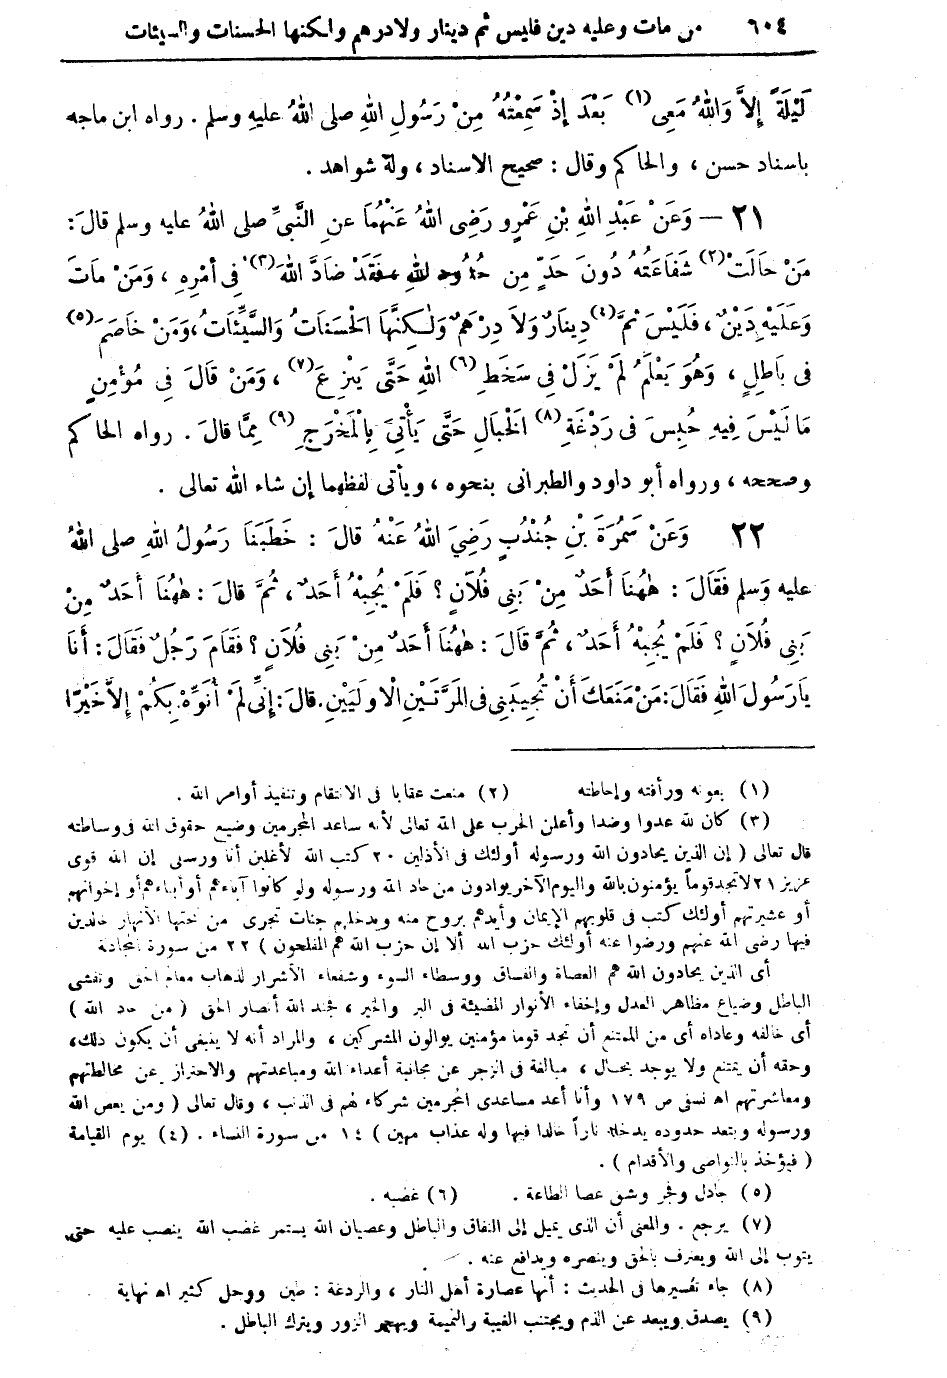 ٦٠٤ من مات وعليه دين فليس ثم دينار ولا درهم ولكنها الحسنات والسيئات
لَيْلَةً إِلاَّ وَاللهُ مَعِى (١) بَعْدَ إِذْ سَمِعْتُهُ مِنْ رَسُولِ اللهِ صلى اللهُ عليهِ وسلم . رواه ابن ماجه
باسناد حسن ، والحاكم وقال : صحيح الاسناد ، وله شواهد .
٢١ — وَعَنْ عَبْدِ اللهِ بْنِ عَمْرٍو رَضِىَ اللهُ عَنْهُمَا عنِ النَّبىِّ صلى اللهُ عليه وسلم قالَ :
مَنْ حَالَتْ (٢) شَفَاعَتُهُ دُونَ حَدٍّ مِن حُدُودِ اللهِ فَقَدْ ضَادَّ اللهَ (٣) فِى أَمْرِهِ ، وَمَنْ مَاتَ
وَعَلَيْهِ دَيْنٌ ، فَلَيْسَ ثَمَّ (٤) دِينَارٌ وَلاَ دِرْهَمٌ وَلٰكِنَّهَا الْحَسَنَاتُ وَالسَّيِّئَاتُ ، وَمَنْ خَاصَمَ (٥)
فى بَاطِلٍ ، وَهُوَ يَعْلَمُ لَمْ يَزَلْ فِى سَخَطِ (٦) اللهِ حَتَّى يَنْزِعَ (٧) ، وَمَنْ قَالَ فِى مُؤْمِنٍ
مَا لَيْسَ فِيهِ حُبِسَ فى رَدْغَةِ (٨) الْخَبَالِ حَتَّى يَأْتِىَ بِالْمَخْرَجِ (٩) مِمَّا قالَ . رواه الحاكم
وصححه ، ورواه أبو داود والطبرانى بنحوه ، ويأتى لفظهما إن شاء الله تعالى .
٢٢ وَعَنْ سَمُرَةَ بْنِ جُنْدُبٍ رَضِيَ اللهُ عَنْهُ قالَ : خَطَبَنَا رَسُولُ اللهِ صلى اللهُ
عليه وَسلم فَقَالَ : هٰهُنَا أَحَدٌ مِنْ بَنِى فُلَانٍ ؟ فَلَمْ يُجِبْهُ أَحَدٌ ، ثُمَّ قالَ : هٰهُنَا أَحَدٌ مِنْ
بَنِى فُلاَنٍ ؟ فَلَمْ يُجِبْهُ أَحَدٌ ، ثُمَّ قَالَ : هٰهُنَا أَحَدٌ مِنْ بَنِى فُلَانٍ ؟ فَقَامَ رَجُلٌ فَقَالَ : أَنَا
يَا رَسُولَ اللهِ فَقَالَ : مَنْ مَنَعَكَ أَنْ تُجِيبَنِى فى الْمَرَّتَيْنِ الْاولَيَيْنِ . قالَ : إِنِّى لَمْ أُنَوِّهْ بِكُمْ إِلاَّ خَيْرًا
(١) بعونه ورأفته وإحاطته (٢) منعت عقابا فى الانتقام وتنفيذ أوامر الله .
(٣) كان لله عدوا وضدا وأعلن الحرب على الله تعالى لأنه ساعد المجرمين وضيع حقوق الله فى وساطته
قال تعالى ( إن الذين يحادون الله ورسوله أولئك فى الأذلين ٢٠ كتب الله لأغلبن أنا ورسلى إن الله قوى
عزيز ٢١ لا تجد قوماً يؤمنون بالله واليوم الآخر يوادون من حاد الله ورسوله ولو كانوا آباءهم أو أبناءهم أو إخوانهم
أو عشيرتهم أولئك كتب فى قلوبهم الإيمان وأيدهم بروح منه ويدخلهم جنات تجرى من تحتها الأنهار خالدين
فيها رضى الله عنهم ورضوا عنه أولئك حزب الله ألا إن حزب الله هم المفلحون ) ٢٢ من سورة المجادلة
أى الذين يحادون الله هم العصاة والفساق ووسطاء السوء وشفعاء الأشرار لذهاب معالم الحق وتفشى
الباطل وضياع مظاهر العدل وإخفاء الأنوار المضيئة فى البر والخير ، فجند الله أنصار الحق ( من حاد الله )
أى خالفه وعاداه أى من الممتنع أن تجد قوما مؤمنين يوالون المشركين ، والمراد أنه لا ينبغى أن يكون ذلك ،
وحقه أن يمتنع ولا يوجد بحال ، مبالغة فى الزجر عن مجانبة أعداء الله ومباعدتهم والاحتراز عن مخالطتهم
ومعاشرتهم اه نسفى ص ١٧٩ وأنا أعد مساعدى المجرمين شركاء لهم فى الذنب ، وقال تعالى ( ومن يعص الله
ورسوله ويتعد حدوده يدخله ناراً خالدا فيها وله عذاب مهين ) ١٤ من سورة النساء . (٤) يوم القيامة
( فيؤخذ بالنواصى والأقدام ) .
(٥) جادل وفجر وشق عصا الطاعة . (٦) غضبه .
(٧) يرجع . والمعنى أن الذى يميل إلى النفاق والباطل وعصيان الله يستمر غضب الله ينصب عليه حتى
يتوب إلى الله ويعترف بالحق وينصره ويدافع عنه .
(٨) جاء تفسيرها فى الحديث : أنها عصارة أهل النار ، والردغة : طين ووحل كثير اه نهاية
(٩) يصدق ويبعد عن الذم ويجتنب الغيبة والنميمة ويهجر الزور ويترك الباطل .